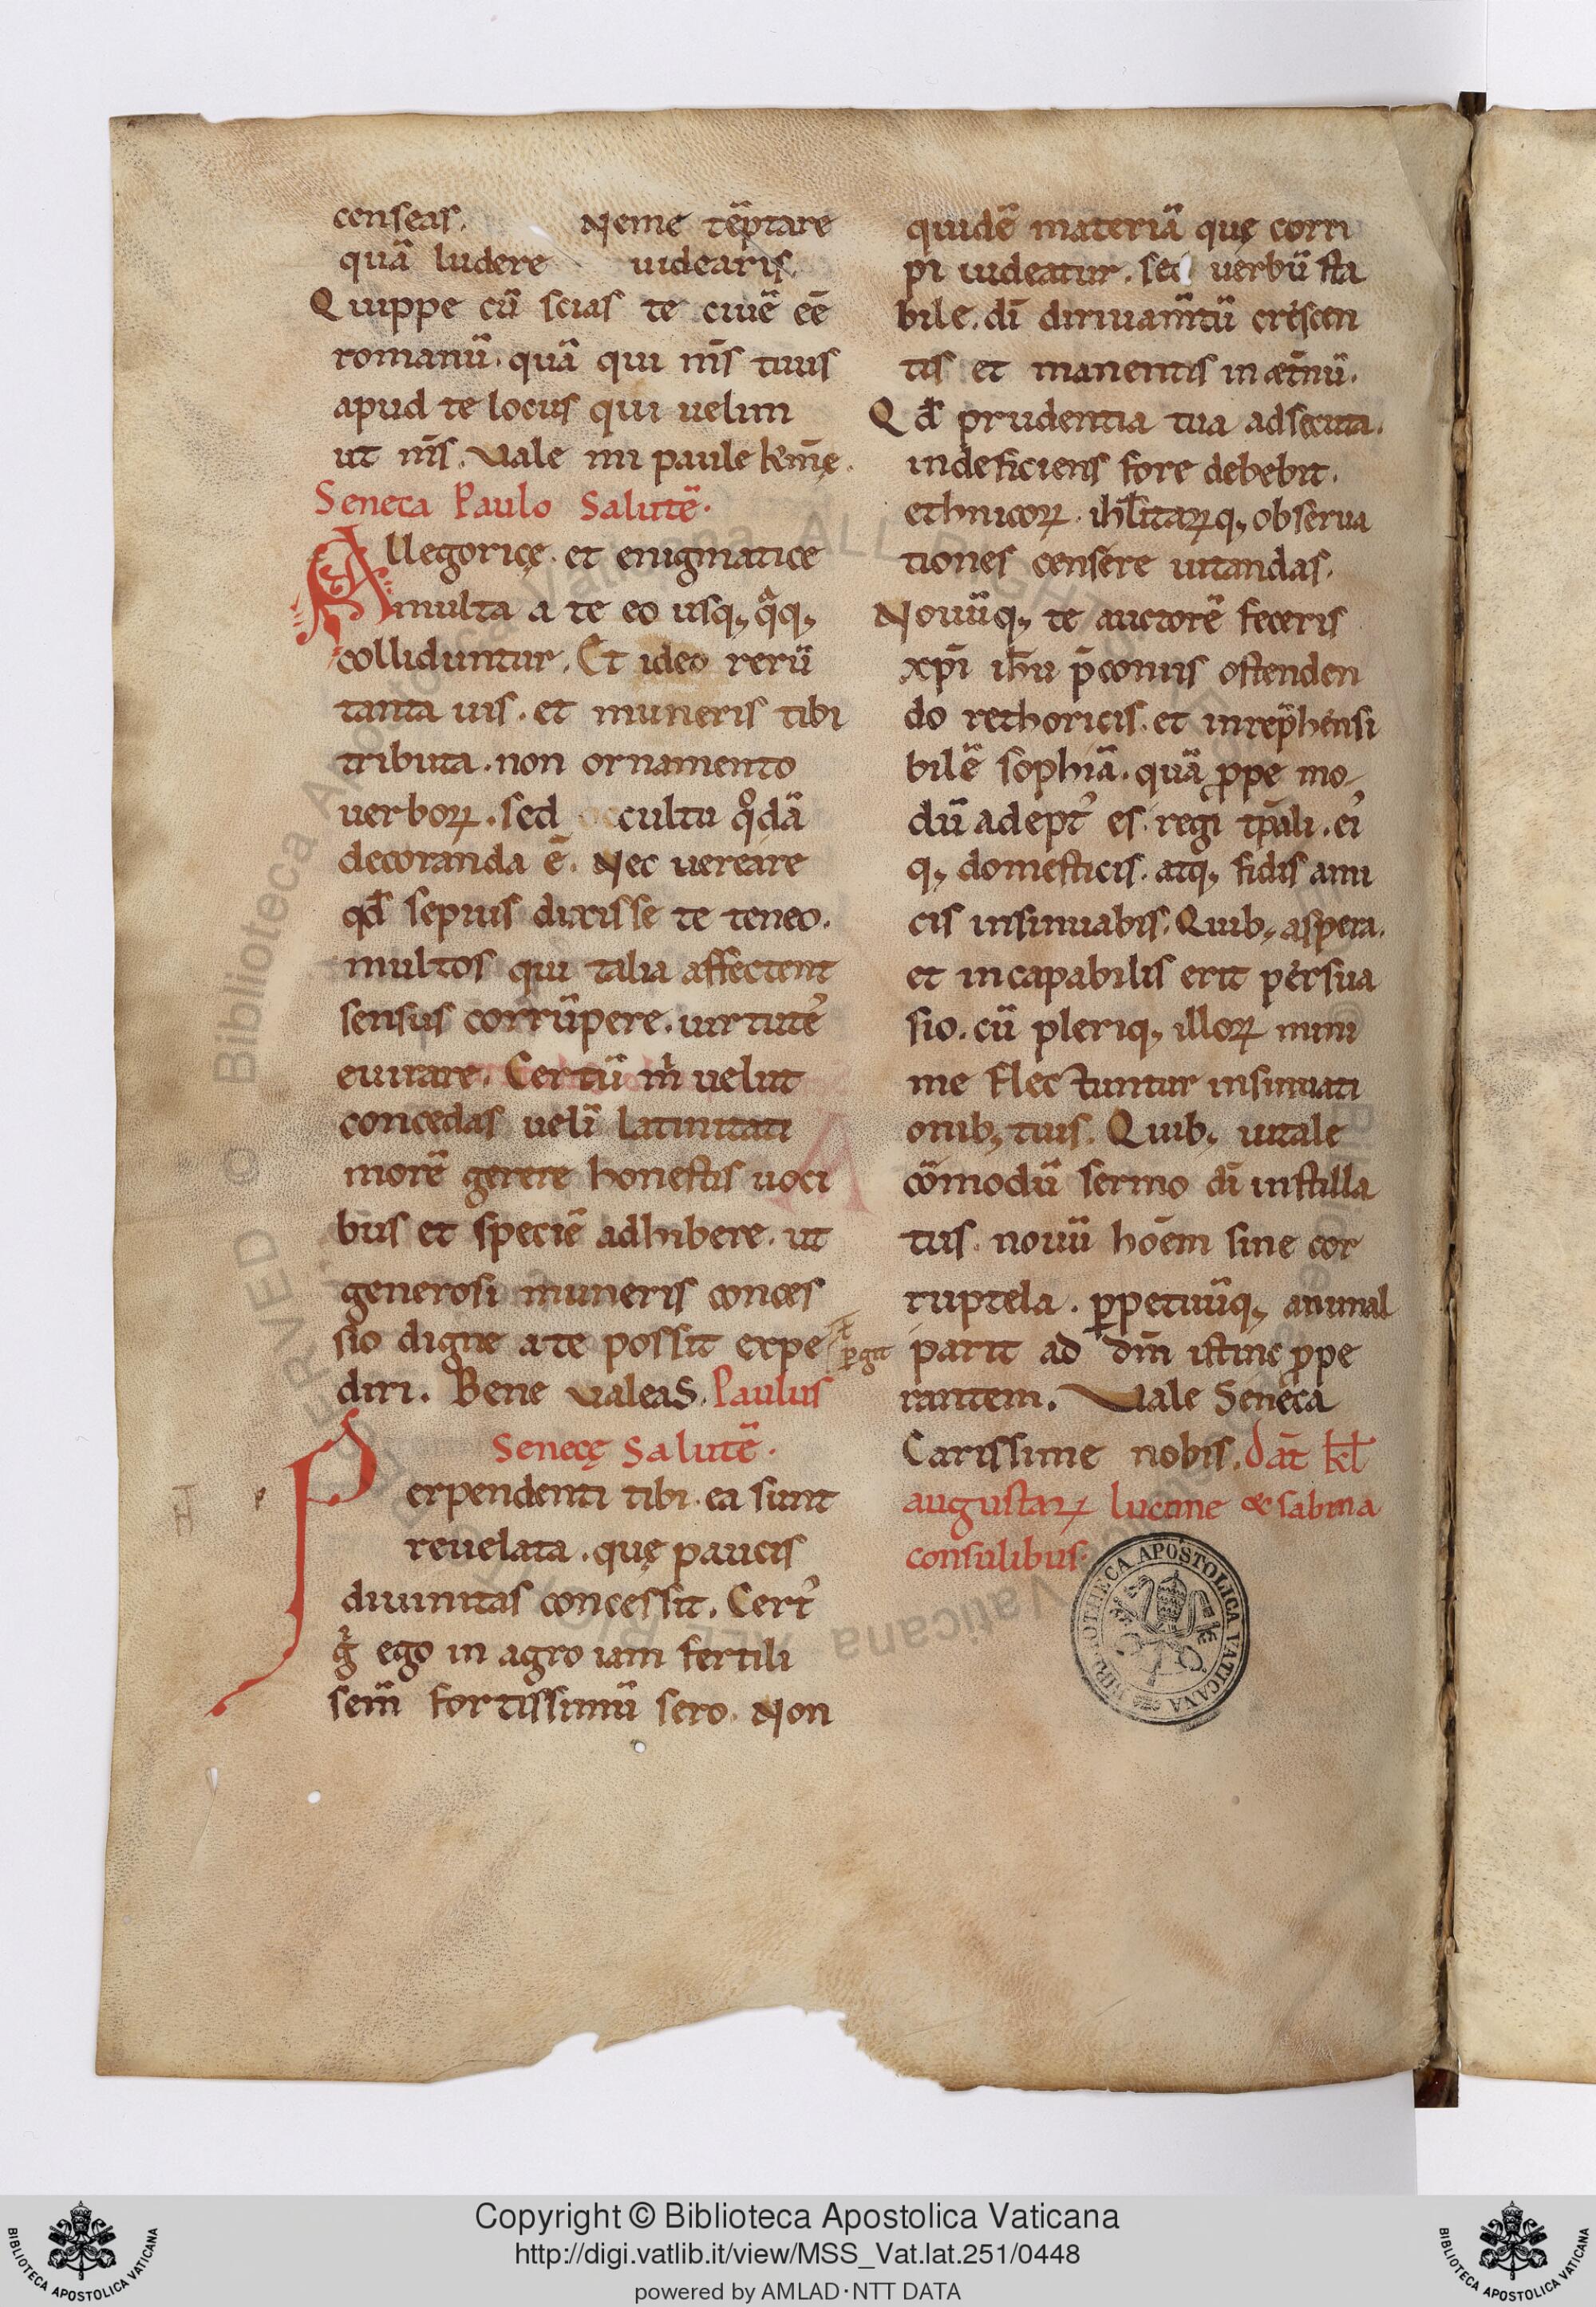 censeas. Neme tẽptare
quã ludere uidearis.
Quippe cũ scias te ciuẽ eẽ
romanũ. quã qui m̄s tuus
apud te locus qui uelim
ut m̄s. Vale mi paule km̄ę.
Seneca Paulo Salutẽ.
Allegoricę. et enigmatice
multa a te eo usq; q̃q;
colliduntur. Et ideo rerũ
tanta uis. et muneris tibi
tributa. non ornamento
uerboꝝ. sed cultu qͦdã
decoranda ẽ. Nec uereare
qđ sepius dixisse te teneo.
multos qui talia affectent
sensus corrũpere. uirtutẽ
euirare. Certũ m̍ uelut
concedas ueli latinitati
morẽ gerere honestis uoci
bus et speciẽ adhibere. ut
generosi muneris conces
sio digne a te possit expe
diri. Bene ualeas. Paulus
Senecę Salutẽ.
Perpendenti tibi. ea sunt
reuelata. quę paucis
diuinitas concessit. Cert᾽
g̍ ego in agro iam fertili
sem̃ fortissimũ sero. Non
quidẽ materiã quę corri
pi uideatur. sed uerbũ sta
bile. dī diriuam̃tũ crescen
tis et manentis in æt̄nũ.
Qđ prudentia tua adsecuta.
indeficiens fore debebit.
ethnicoꝝ. ihłitaꝝq; obserua
tiones censere uitandas.
Nouũq; te auctorẽ feceris
xp̄i ih̄u p̄coniis ostenden
do rethoricis. et inrep̃hensi
bilẽ sophiã. quã ꝓpe mo-
dũ adept᾽ es. regi tp̄ali. ei᾽
q; domesticis. atq; fidis ami
cis insinuabis. Quib; aspera.
et incapabilis erit persua
sio. cũ pleriq; illoꝝ mini
me flectuntur insinuati
onib; tuis. Quib; uitale
cõmodũ sermo dī instilla
tus. nouũ hoēm sine cor
ruptela. ꝑpetuũq; animal
ꝑgit
parit ad dm̄ istinc ꝓpe
rantem. Vale Seneca
Carissime nobis. Dat̄ kł
augustaꝝ lucone & sabina
consulibus.
BIBLIOTHECA APOSTOLICA VATICANA
Copyright © Biblioteca Apostolica Vaticana
http://digi.vatlib.it/view/MSS_Vat.lat.251/0448
powered by AMLAD·NTT DATA
BIBLIOTECA APOSTOLICA VATICANA
BIBLIOTECA APOSTOLICA VATICANA